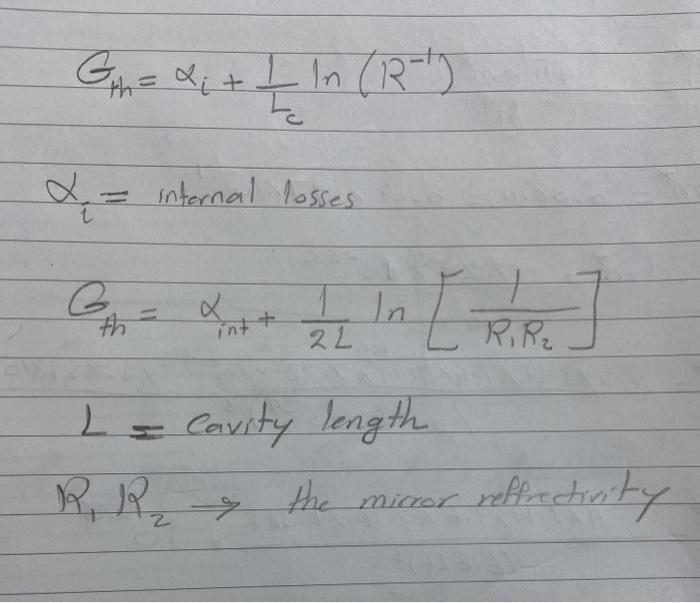 G_th = α_i + 1/L_c ln (R^-1)
α_i = internal losses
G_th = α_int + 1/2L ln [1/R_1 R_2]
L = Cavity length
R_1 R_2 → the mirror reffrectivity